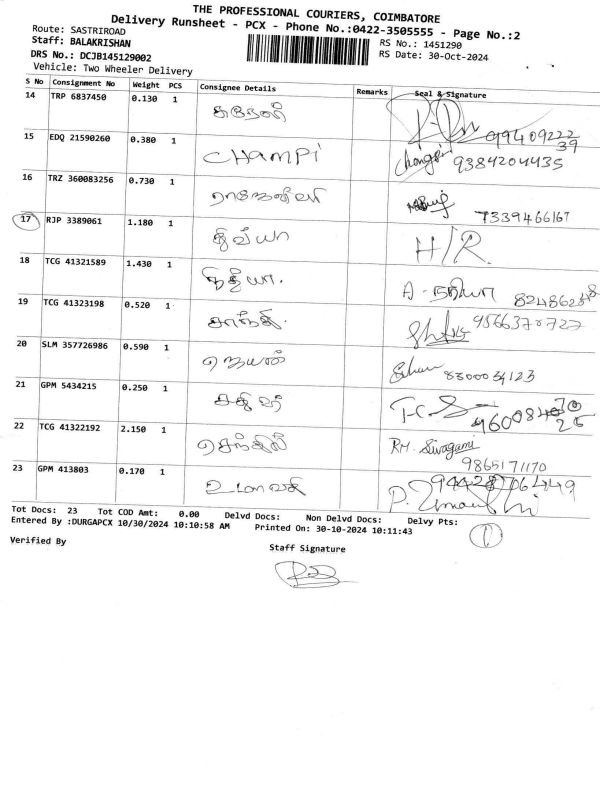 THE PROFESSIONAL COURIERS, COIMBATORE
Delivery Runsheet - PCX - Phone No.:0422-3505555 - Page No.:2
Route: SASTRIROAD
Staff: BALAKRISHAN
DRS No.: DCJB145129002
Vehicle: Two Wheeler Delivery
RS No.: 1451290
RS Date: 30-Oct-2024
S No Consignment No Weight PCS Consignee Details Remarks Seal & Signature
14 TRP 6837450 0.130 1
15 EDQ 21590260 0.380 1 CHAMPI 9384204435
16 TRZ 360083256 0.730 1 ராஜேஸ்வரி 7339466167
17 RJP 3389061 1.180 1 திவ்யா H/R.
18 TCG 41321589 1.430 1 நித்யா.
19 TCG 41323198 0.520 1 சாந்தி. 9566370727
20 SLM 357726986 0.590 1 ஜெயஸ்ரீ 8300034123
21 GPM 5434215 0.250 1
22 TCG 41322192 2.150 1 செந்தில் RM. Sivagami
9865171170
23 GPM 413803 0.170 1 உமாவதி
Tot Docs: 23 Tot COD Amt: 0.00 Delvd Docs: Non Delvd Docs: Delvy Pts:
Entered By :DURGAPCX 10/30/2024 10:10:58 AM Printed On: 30-10-2024 10:11:43
Verified By
Staff Signature